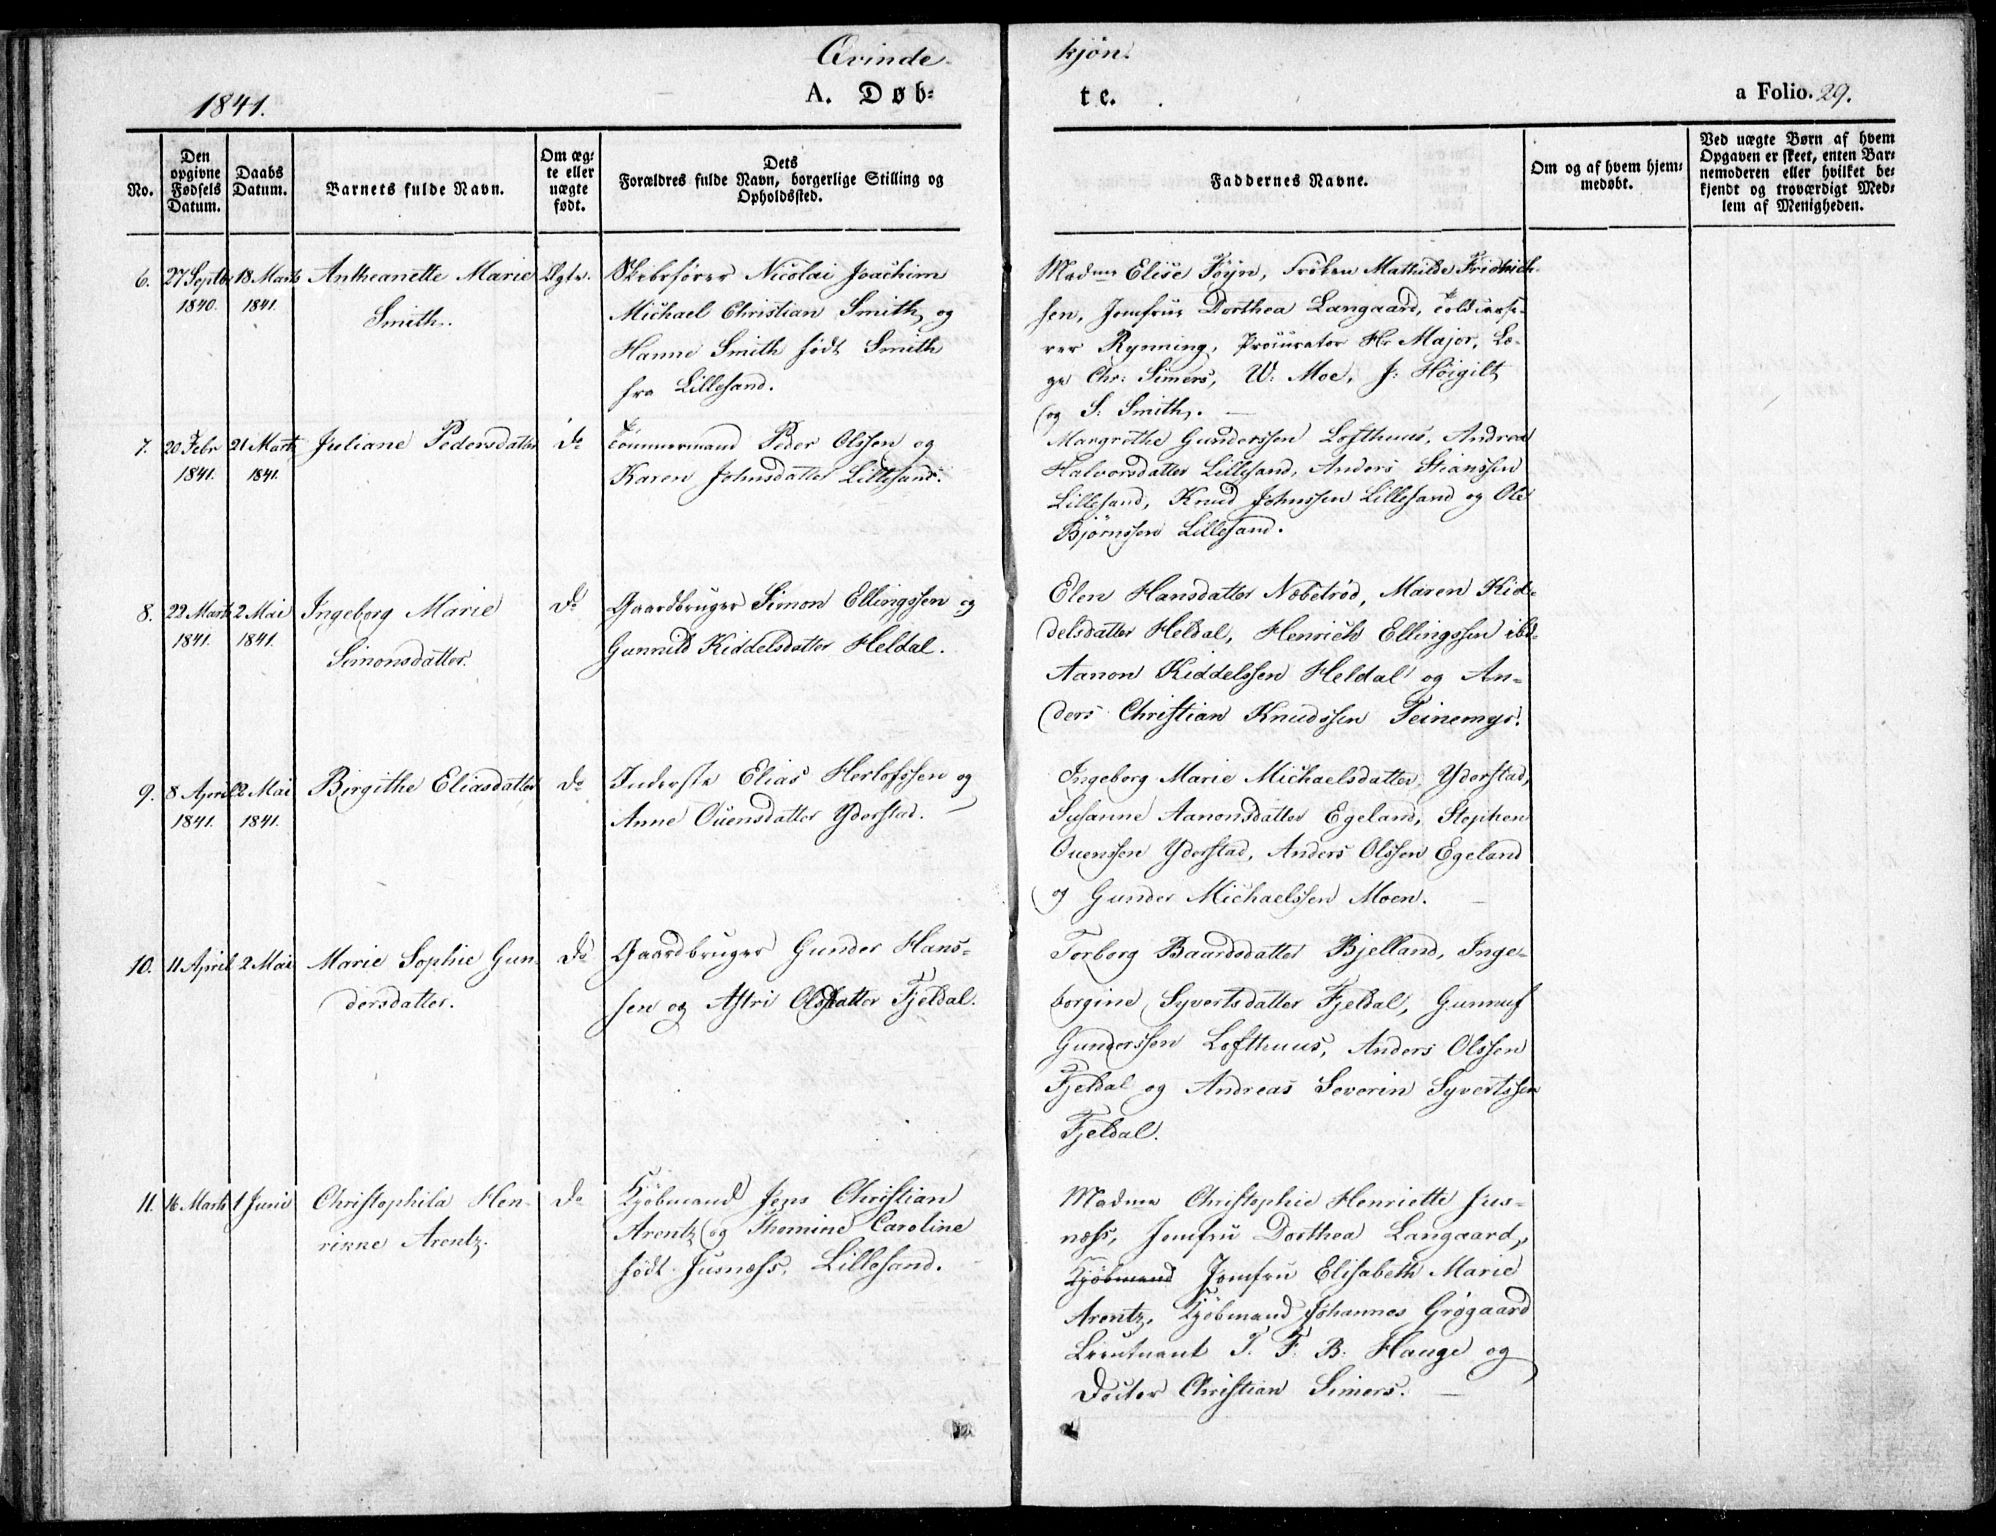 Qvinde-
kjøn.
1841.
A. Døb-
te.
a Folio. 29.
No.
Den opgivne Fødsels Datum.
Daabs Datum.
Barnets fulde Navn.
Om ægte eller uægte født.
Dets Forældres fulde Navn, borgerlige Stilling og Opholdssted.
Faddernes Navne.
Om og af hvem hjemmedøbt.
Ved uægte Børn af hvem Opgaven er skeet, enten Barnemoderen eller hvilket bekjendt og troværdigt Medlem af Menigheden.
6. 27 Septbr 18 Marts Antheanette Marie Ægte. Skibsfører Nicolai Joachim
1840. 1841. Smith. Michael Christian Smith og
Hanne Smith født Smith
fra Lillesand.
Madme Elise Föyn, Fröken Mathilde Fridrich-
sen, Jomfrue Dorthea Langaard, Toldinsse-
rer Rynning, Procurator Hr Major, Læ-
ge Chr: Simers, W. Moe, J: Höigilt
og S. Smith.
7. 20 Febr 21 Marts Juliane Pedersdatter do Tømmermand Peder Olssen og
1841. 1841. Karen Johnsdatter Lillesand.
Margrethe Gunderssen Lofthuus, Andrea
Halvorsdatter Lillesand, Anders Stianssen
Lillesand, Knud Johnssen Lillesand og Ole
Bjørnssen Lillesand.
8. 22 Marts 2 Mai Ingeborg Marie do Gaardbruger Simon Ellingssen og
1841. 1841. Simonsdatter. Gunnild Kiddelsdatter Heldal.
Elen Hansdatter Næbetrød, Maren Kid-
delsdatter Heldal, Henrich Ellingssen ibd.
Aanon Kiddelssen Heldal og An-
ders Christian Knudssen Teinemyr.
9. 8 April 2 Mai Birgithe Eliasdatter do Inderste Elias Herlofssen og
1841. 1841. Anne Ouensdatter Yderstad.
Ingeborg Marie Michaelsdatter Yderstad,
Susanne Aanonsdatter Egeland, Stephen
Ouenssen Yderstad, Anders Olssen Egeland
og Gunder Michaelssen Moen.
10. 11 April 2 Mai Marie Sophie Gun- do Gaardbruger Gunder Hans-
dersdatter. sen og Astri Olsdatter Fjeldal.
Torborg Baardsdatter Bjelland, Inge-
borgine Syvertsdatter Fjeldal, Gunnuf
Gunderssen Lofthuus, Anders Olssen
Fjeldal og Andreas Severin Syvertssen
Fjeldal.
11. 16 Marts 1 Juni Christophila Hen- do Kjöbmand Jens Christian
rikke Arentz. Arentz og Thomine Caroline
født Jusnæss, Lillesand.
Madme Christophie Henriette Jus-
næss, Jomfru Dorthea Langaard,
Kjöbmand Jomfru Elisabeth Marie
Arentz, Kjöbmand Johannes Grøgaard
Lieutnant J. F. B. Hauge og
Doctor Christian Simers.